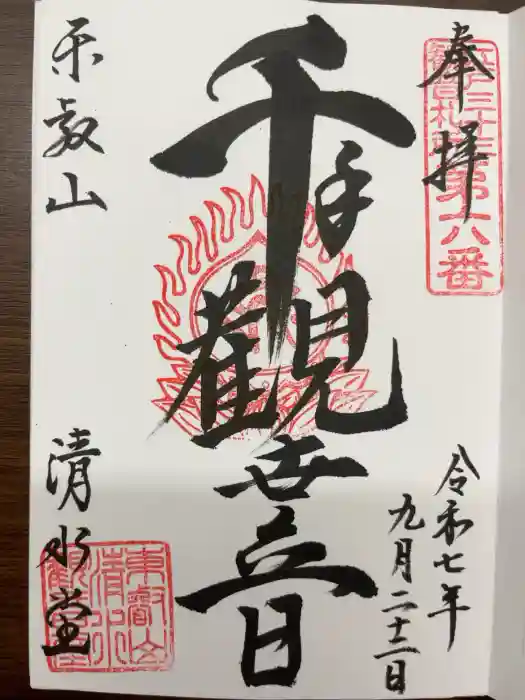 奉拝
江戸三十三観音札所第六番
令和七年
九月二十二日
千手観世音
東叡山
清水堂
東叡山清水観音堂